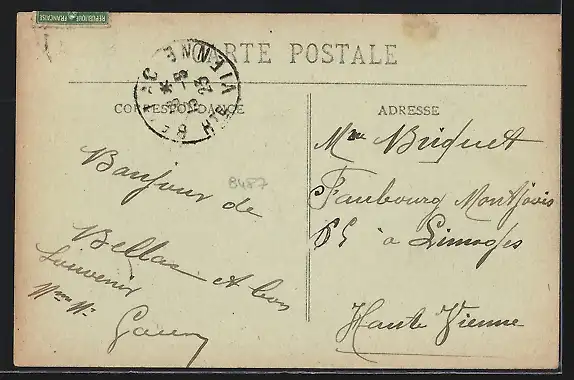 REPUBLIQUE FRANÇAISE
CARTE POSTALE
HTE VIENNE
23
CORRESPONDANCE
ADRESSE
Bonjour de
Bellac et bon
Souvenir
8487
Mme Briquet
Faubourg Montjovis
65 à Limoges
Haute Vienne